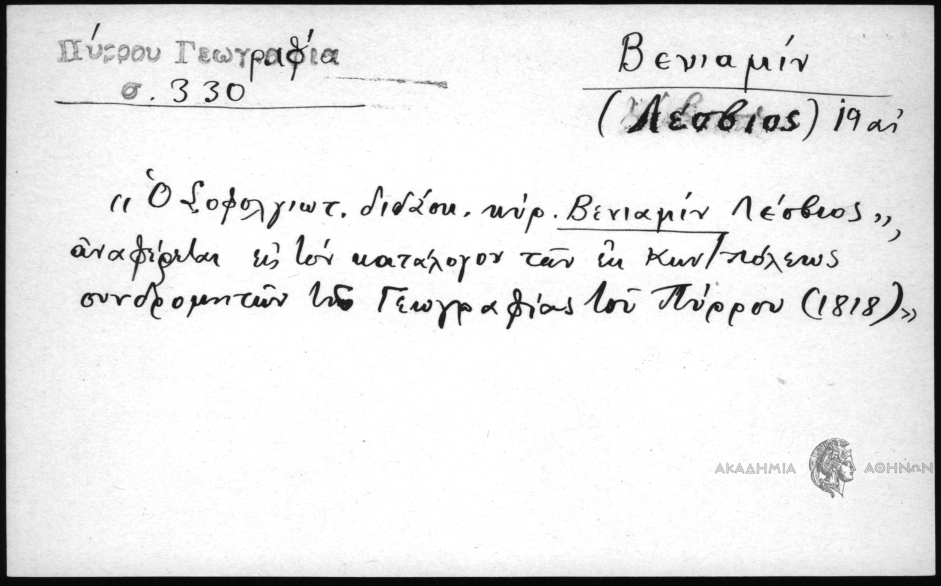 Πύρρου Γεωγραφία
σ. 330
Βενιαμίν
(Λέσβιος) 19 αἰ
«Ὁ Σοφολγιωτ. διδάσκ. κύρ. Βενιαμίν Λέσβιος»,
ἀναφέρεται εἰς τόν κατάλογον τῶν ἐκ Κων/πόλεως
συνδρομητῶν τῆς Γεωγραφίας τοῦ Πύρρου (1818)»
ΑΚΑΔΗΜΙΑ ΑΘΗΝΩΝ